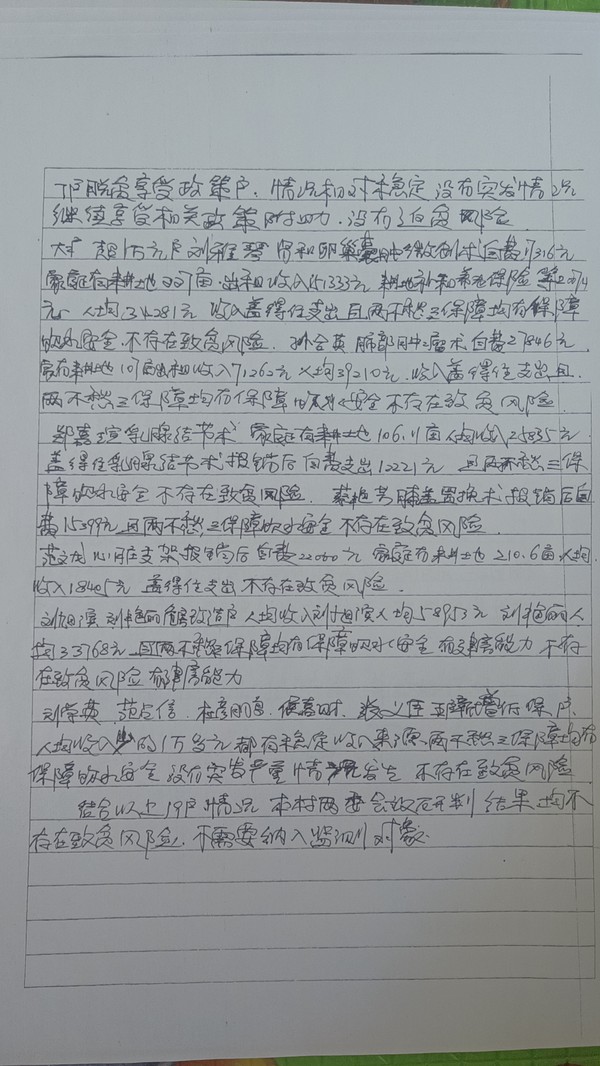 7户脱贫享受政策户,情况相对稳定没有突发情况
继续享受相关政策附助力,没有返贫风险
大病超1万元户刘 肾和卵巢囊肿 自费17316元
家庭有耕地227亩,出租收入151333元 耕地补和养老保险
元 人均34281元 收入盖得住支出且两不愁三保障均有保障
饮水安全,不存在致贫风险. 孙合英 肺部肿瘤术自费27846元
家有耕地107亩出租收入71262元人均39210元.收入盖得住支出且
两不愁三保障均有保障饮水安全不存在致贫风险.
郑嘉瑄乳腺结节术 家庭有耕地106.11亩人均收入25835元
盖得住乳腺结节术报销后自费支出12221元 且两不愁三保
障饮水安全不存在致贫风险. 蔡艳芳膝盖置换术报销后自
费15399元且两不愁三保障饮水安全 不存在致贫风险
范文龙心脏支架报销后自费22060元 家庭有耕地210.6亩人均
收入18405元 盖得住支出不存在致贫风险.
刘旭滨 刘艳丽危房改造户人均收入刘旭滨人均58953元 刘艳丽人
均33768元且两不愁三保障均有保障饮水安全 有建房能力 不存
在致贫风险有建房能力
刘常英、范占信、杜彦朋、侯喜财、 低保户
人均收入少的1万多元都有稳定收入来源两不愁三保障均有
保障饮水安全没有突发严重情况发生 不存在致贫风险
结合以上19户情况 本村两委会议研判结果均不
存在致贫风险,不需要纳入监测对象.